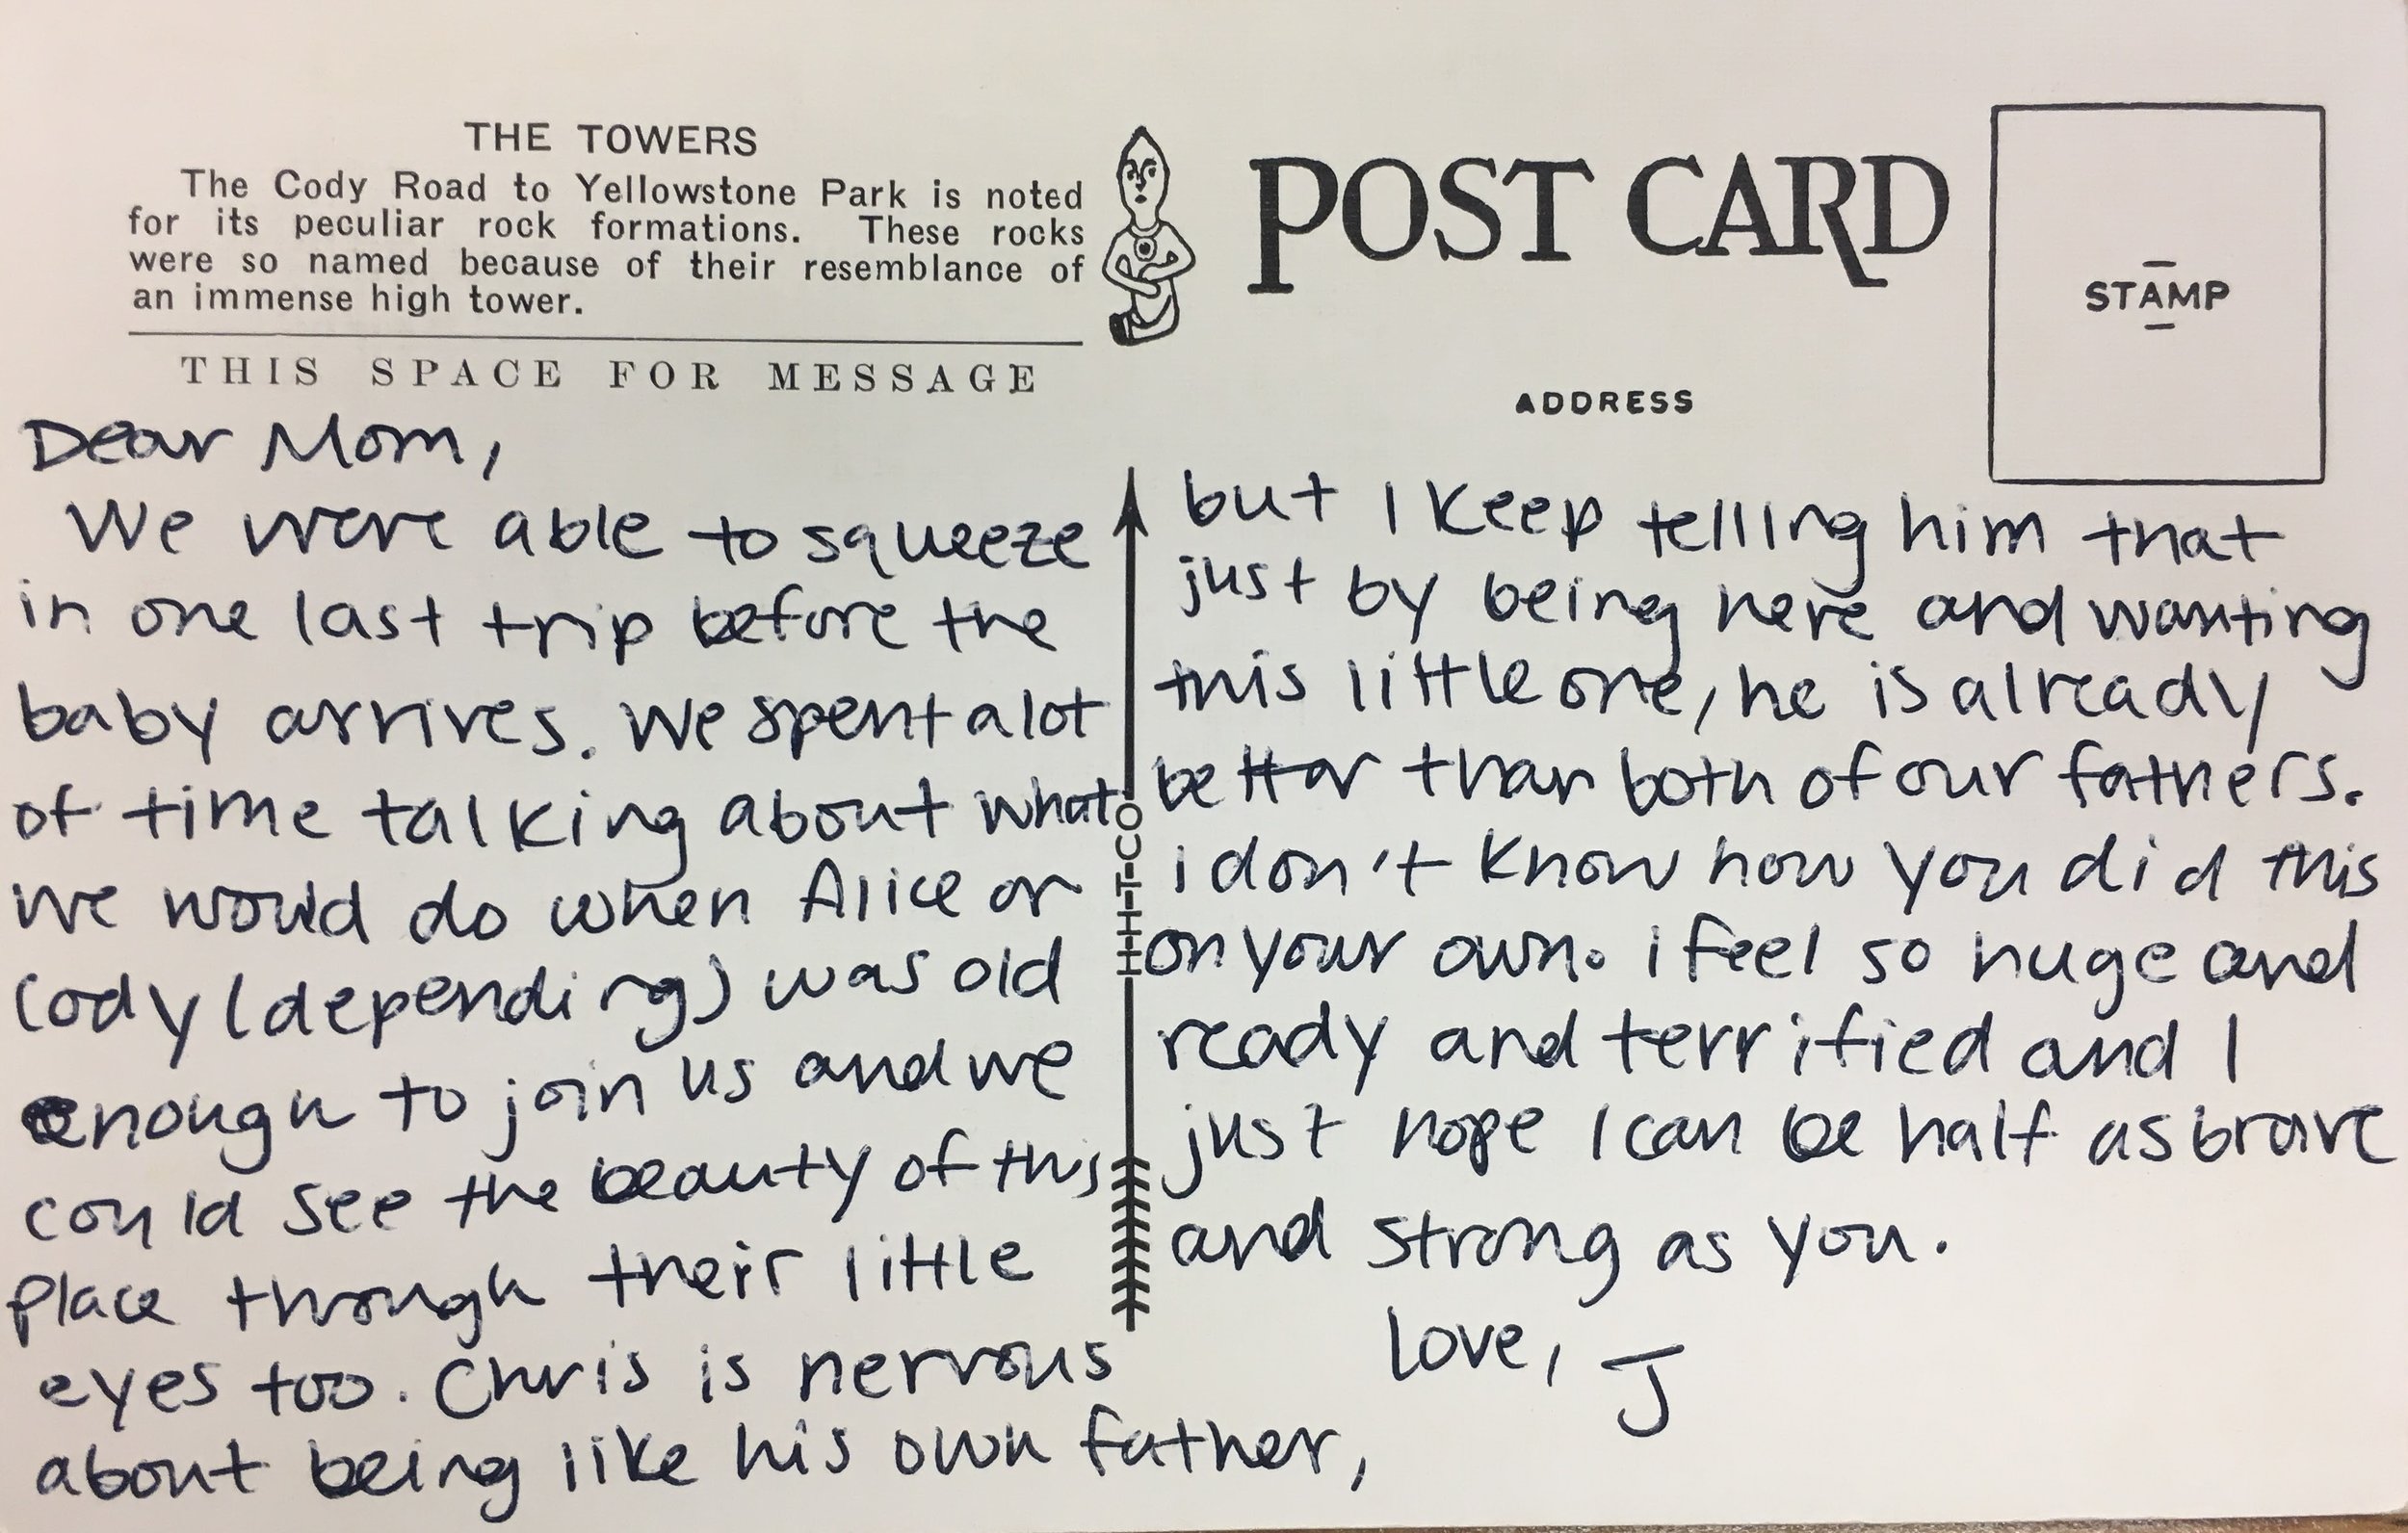 THE TOWERS
The Cody Road to Yellowstone Park is noted
for its peculiar rock formations. These rocks
were so named because of their resemblance of
an immense high tower.
THIS SPACE FOR MESSAGE
POST CARD
ADDRESS
STAMP
Dear Mom,
We were able to squeeze
in one last trip before the
baby arrives. We spent a lot
of time talking about what
we would do when Alice or
Cody (depending) was old
enough to join us and we
could see the beauty of this
place through their little
eyes too. Chris is nervous
about being like his own father,
but I keep telling him that
just by being here and wanting
this little one, he is already
better than both of our fathers.
i don't know how you did this
on your own. i feel so huge and
ready and terrified and I
just hope I can be half as brave
and strong as you.
love, J
HHTCO